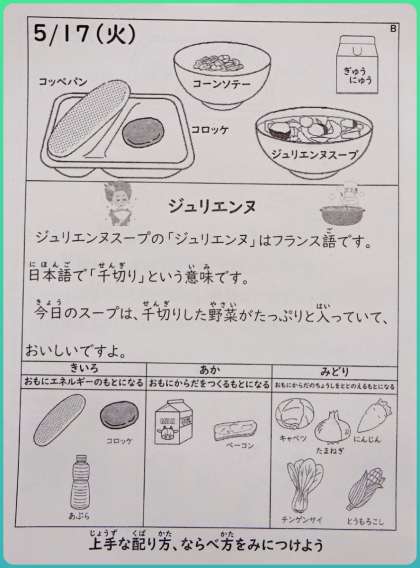 5/17(火)
B
コッペパン
コーンソテー
ぎゅう
にゅう
コロッケ
ジュリエンヌスープ
ジュリエンヌ
ジュリエンヌスープの「ジュリエンヌ」はフランス語です。
日本語で「千切り」という意味です。
今日のスープは、千切りした野菜がたっぷりと入っていて、
おいしいですよ。
きいろ
あか
みどり
おもにエネルギーのもとになる
おもにからだをつくるもとになる
おもにからだのちょうしをととのえるもとになる
コロッケ
ベーコン
キャベツ
たまねぎ
にんじん
あぶら
チンゲンサイ
とうもろこし
上手な配り方、ならべ方をみにつけよう